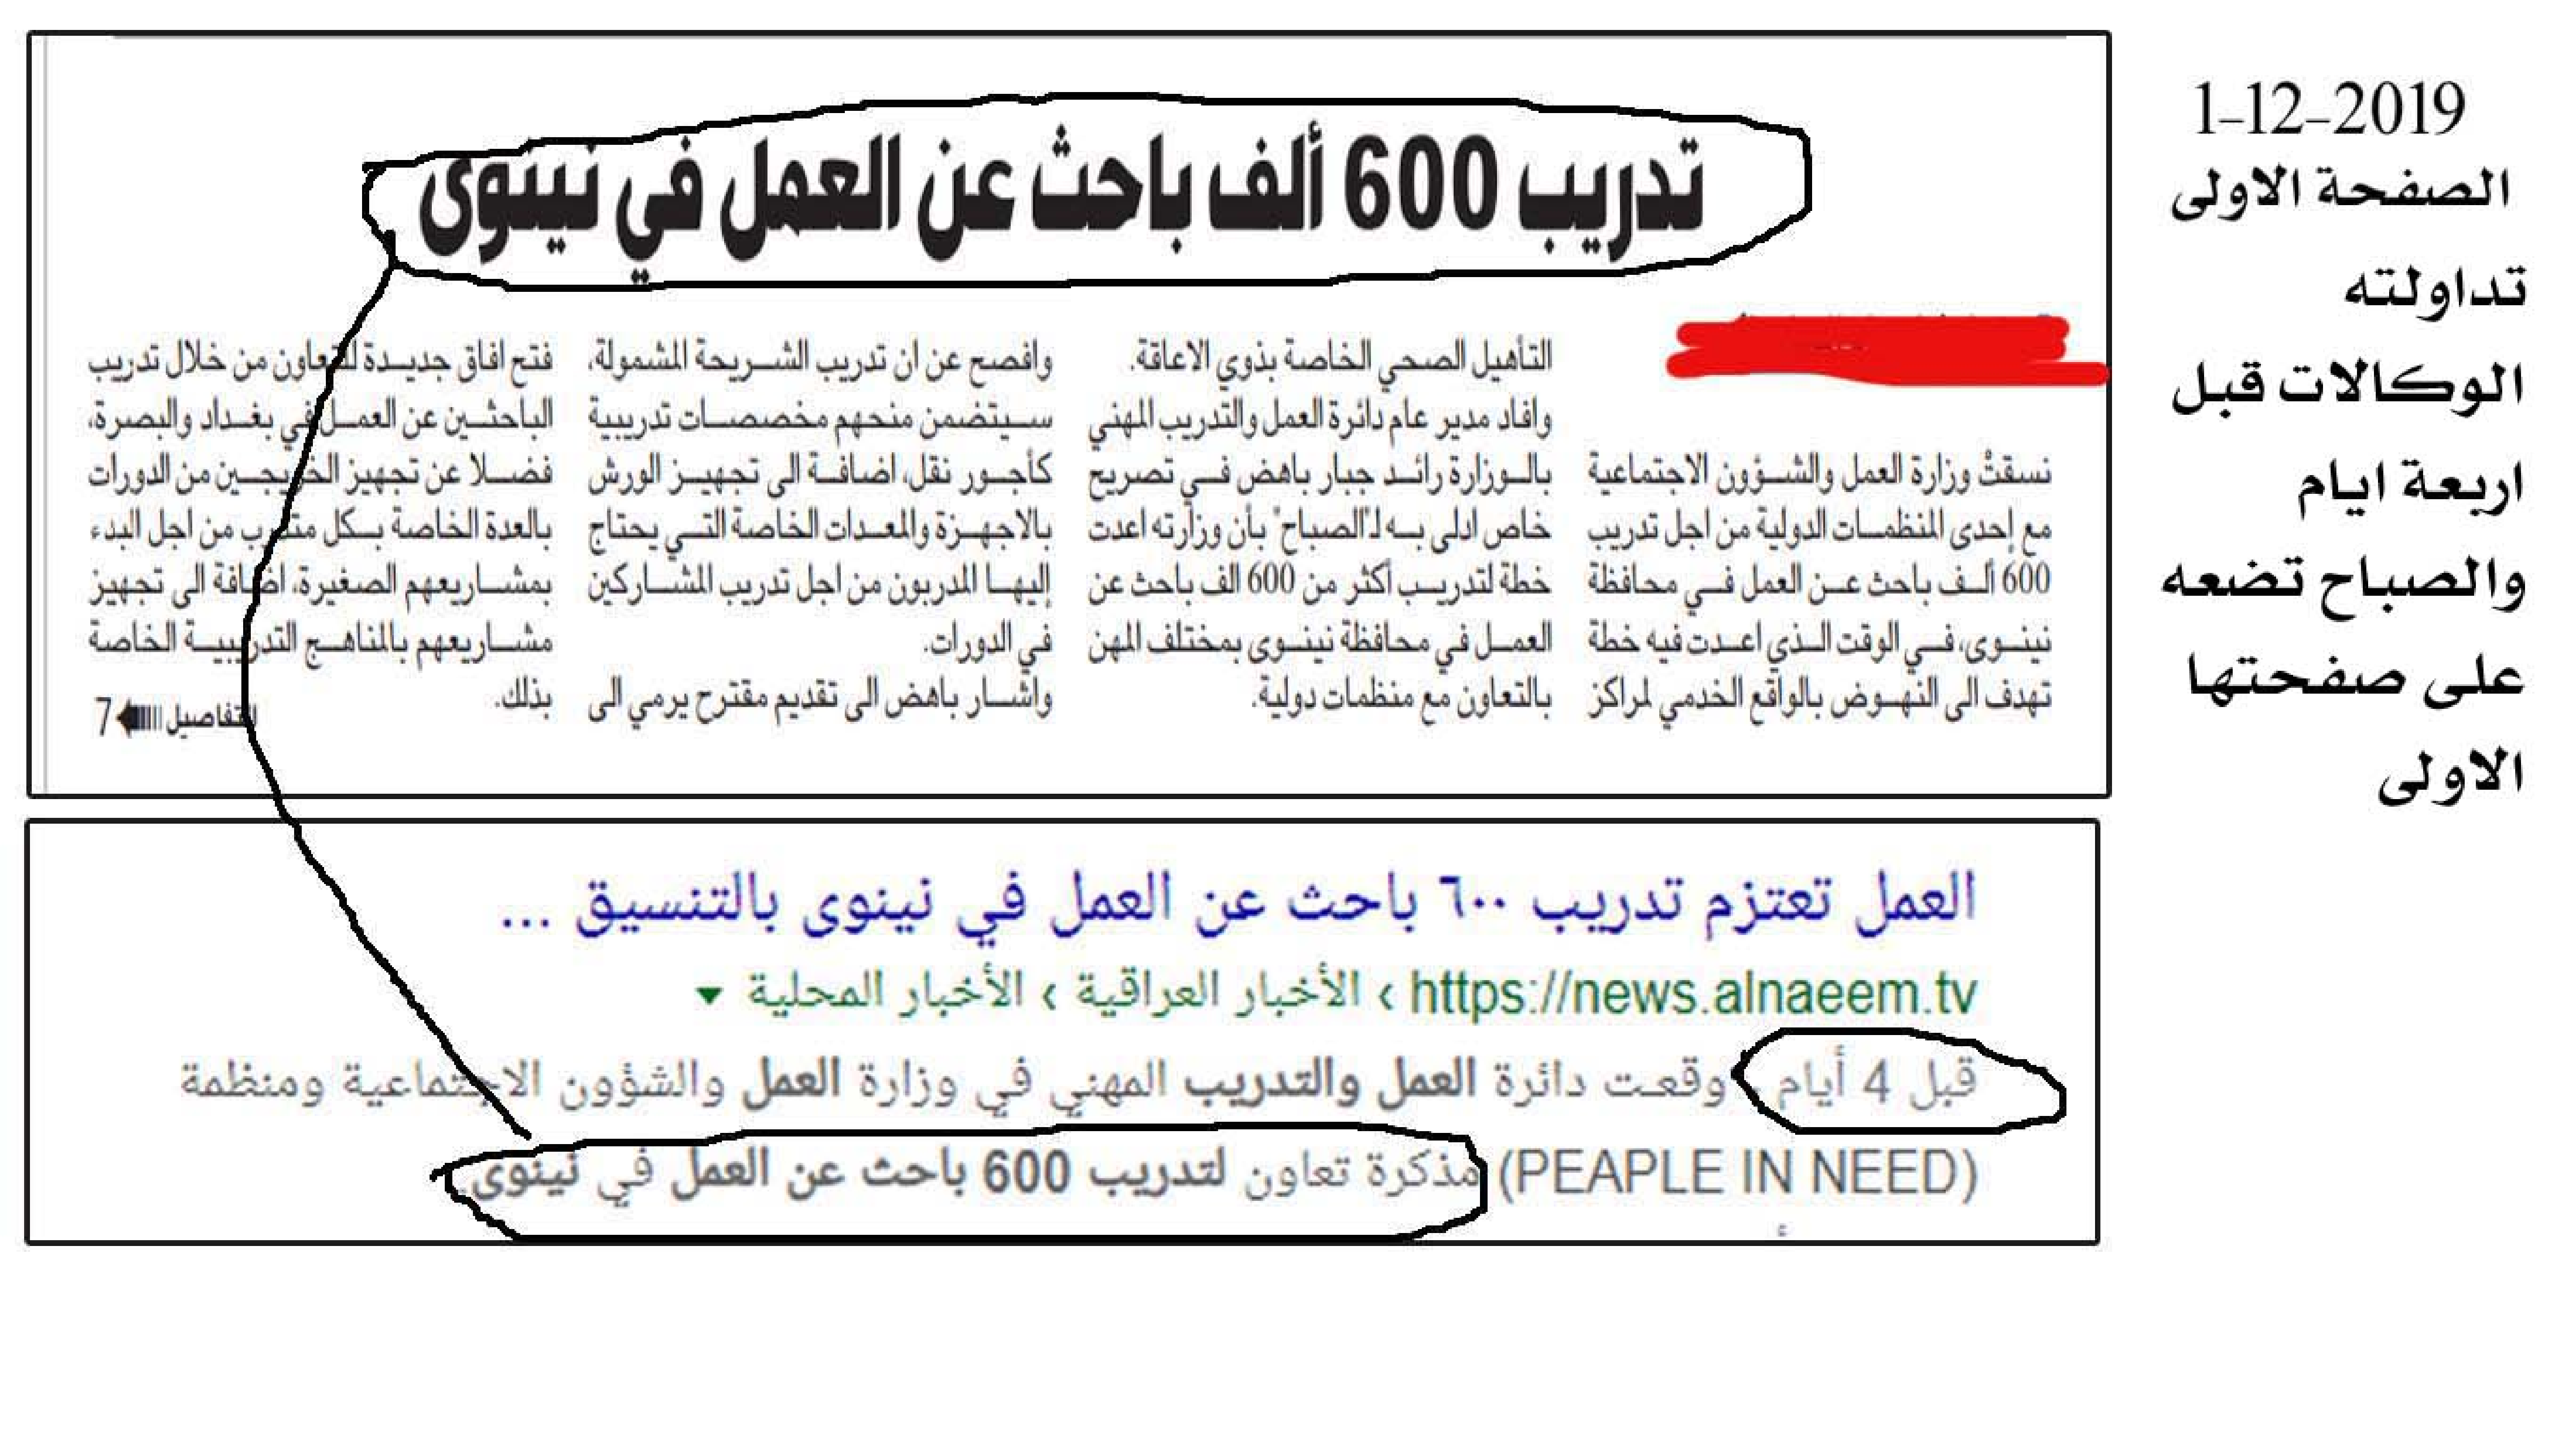 1-12-2019
الصفحة الاولى
تداولته
الوكالات قبل
اربعة ايام
والصباح تضعه
على صفحتها
الاولى
تدريب 600 ألف باحث عن العمل في نينوى
نسقتْ وزارة العمل والشؤون الاجتماعية
مع إحدى المنظمات الدولية من اجل تدريب
600 ألف باحث عن العمل في محافظة
نينوى، في الوقت الذي اعدت فيه خطة
تهدف الى النهوض بالواقع الخدمي لمراكز
التأهيل الصحي الخاصة بذوي الاعاقة.
وافاد مدير عام دائرة العمل والتدريب المهني
بالوزارة رائد جبار باهض في تصريح
خاص ادلى به لـ"الصباح" بأن وزارته اعدت
خطة لتدريب أكثر من 600 الف باحث عن
العمل في محافظة نينوى بمختلف المهن
بالتعاون مع منظمات دولية.
وافصح عن ان تدريب الشريحة المشمولة،
سيتضمن منحهم مخصصات تدريبية
كأجور نقل، اضافة الى تجهيز الورش
بالاجهزة والمعدات الخاصة التي يحتاج
إليها المدربون من اجل تدريب المشاركين
في الدورات.
واشار باهض الى تقديم مقترح يرمي الى
فتح افاق جديدة للتعاون من خلال تدريب
الباحثين عن العمل في بغداد والبصرة،
فضلا عن تجهيز الخريجين من الدورات
بالعدة الخاصة بكل متدرب من اجل البدء
بمشاريعهم الصغيرة، اضافة الى تجهيز
مشاريعهم بالمناهج التدريبية الخاصة
بذلك.
التفاصيل 7
العمل تعتزم تدريب ٦٠٠ باحث عن العمل في نينوى بالتنسيق ...
https://news.alnaeem.tv › الأخبار العراقية › الأخبار المحلية
قبل 4 أيام - وقعت دائرة العمل والتدريب المهني في وزارة العمل والشؤون الاجتماعية ومنظمة
(PEAPLE IN NEED) مذكرة تعاون لتدريب 600 باحث عن العمل في نينوى.